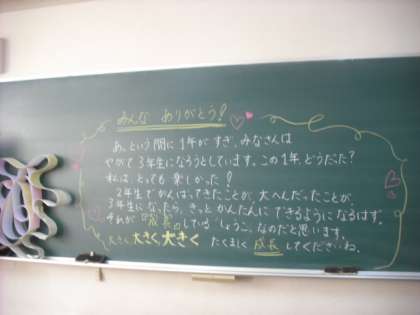 みんな ありがとう!
あっという間に1年がすぎ、みなさんは
やがて3年生になろうとしています。この1年、どうだった?
私は とっても 楽しかった!
2年生でがんばってきたことが、大へんだったことが、
3年生になったら、きっと かんたんに できるように なるはず。
それが『成長』している"しょうこ"なのだと思います。
大きく 大きく 大きく たくましく 成長 してくださいね。